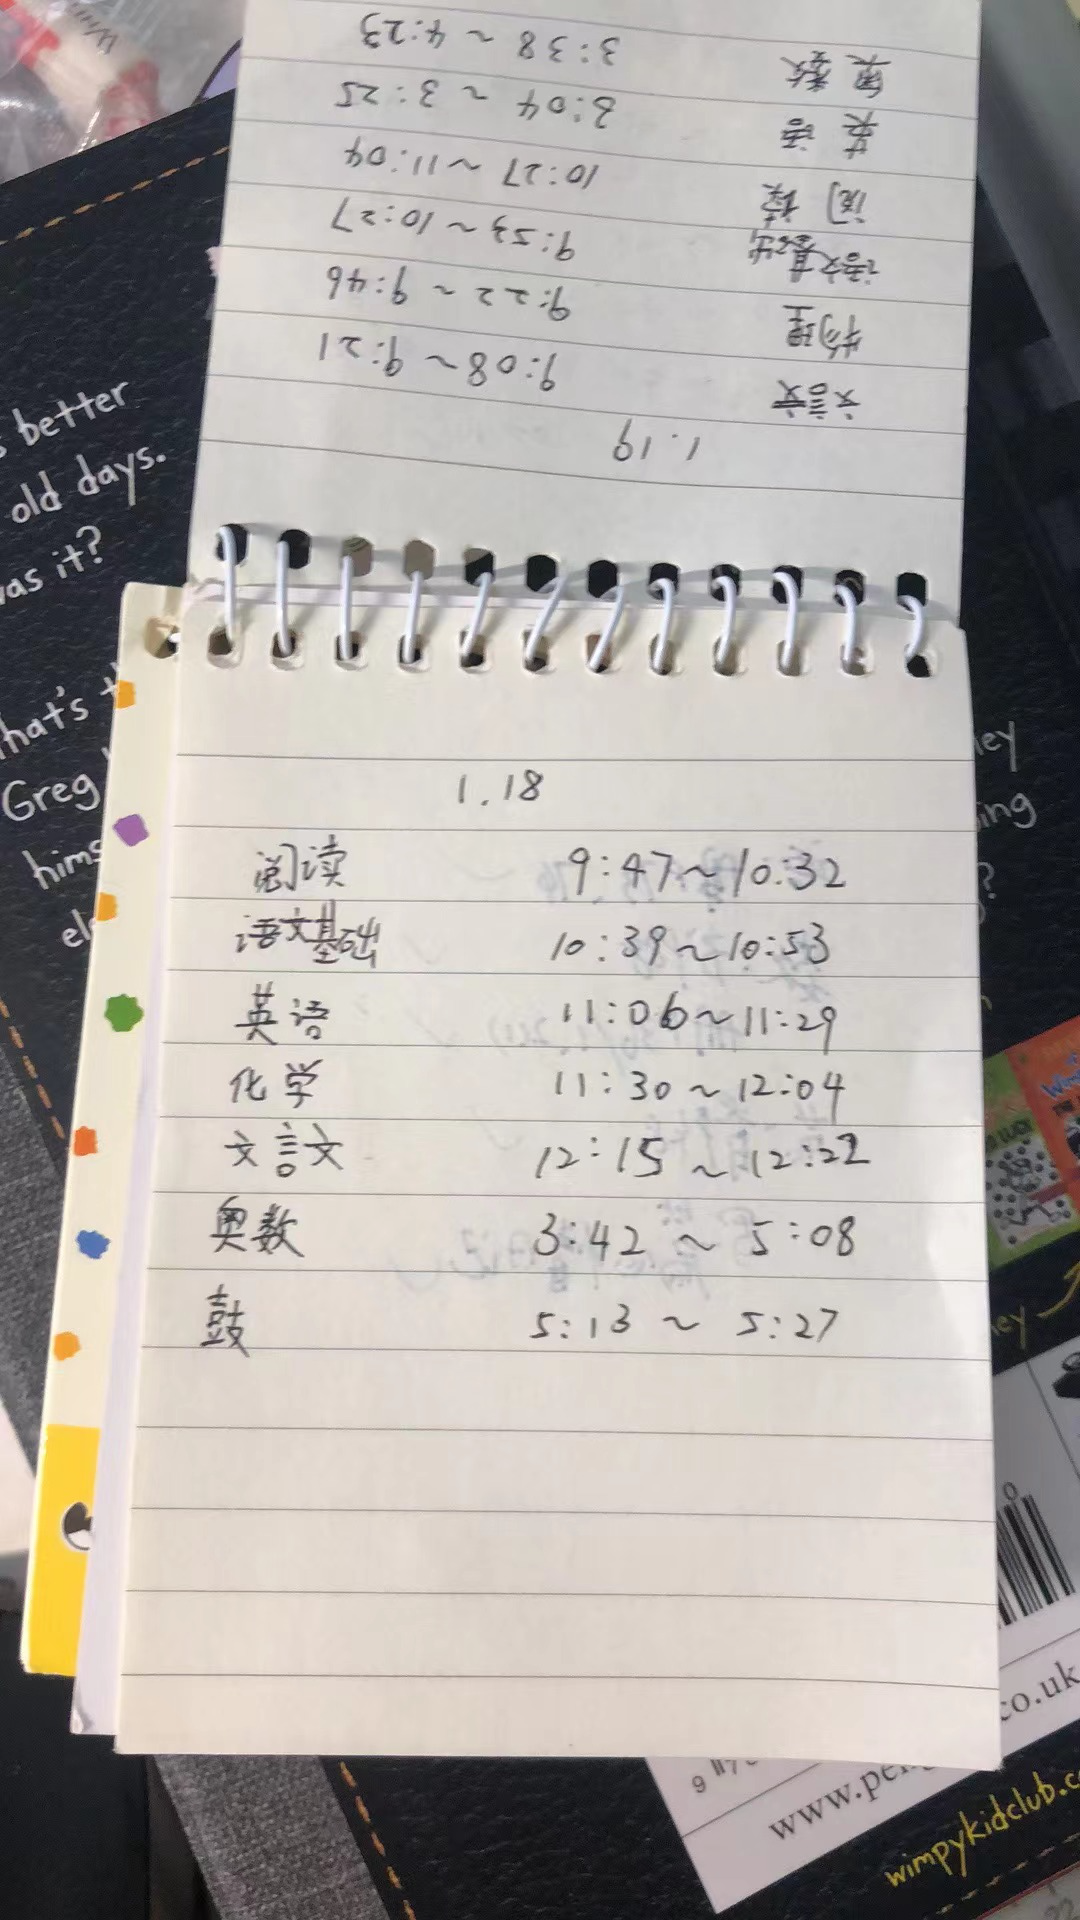 1.18
阅读 9:47~10:32
语文基础 10:39~10:53
英语 11:06~11:29
化学 11:30~12:04
文言文 12:15~12:22
奥数 3:42~5:08
鼓 5:13~5:27
1.19
文言文 9:08~9:21
物理 9:22~9:46
语文基础 9:53~10:27
阅读 10:27~11:04
英语 3:04~3:25
奥数 3:38~4:23
better
old days.
was it?
hat's
Greg
hims
el
ey
ing
?
ey
0
co.uk
9
www.pen
wimpykidclub.c